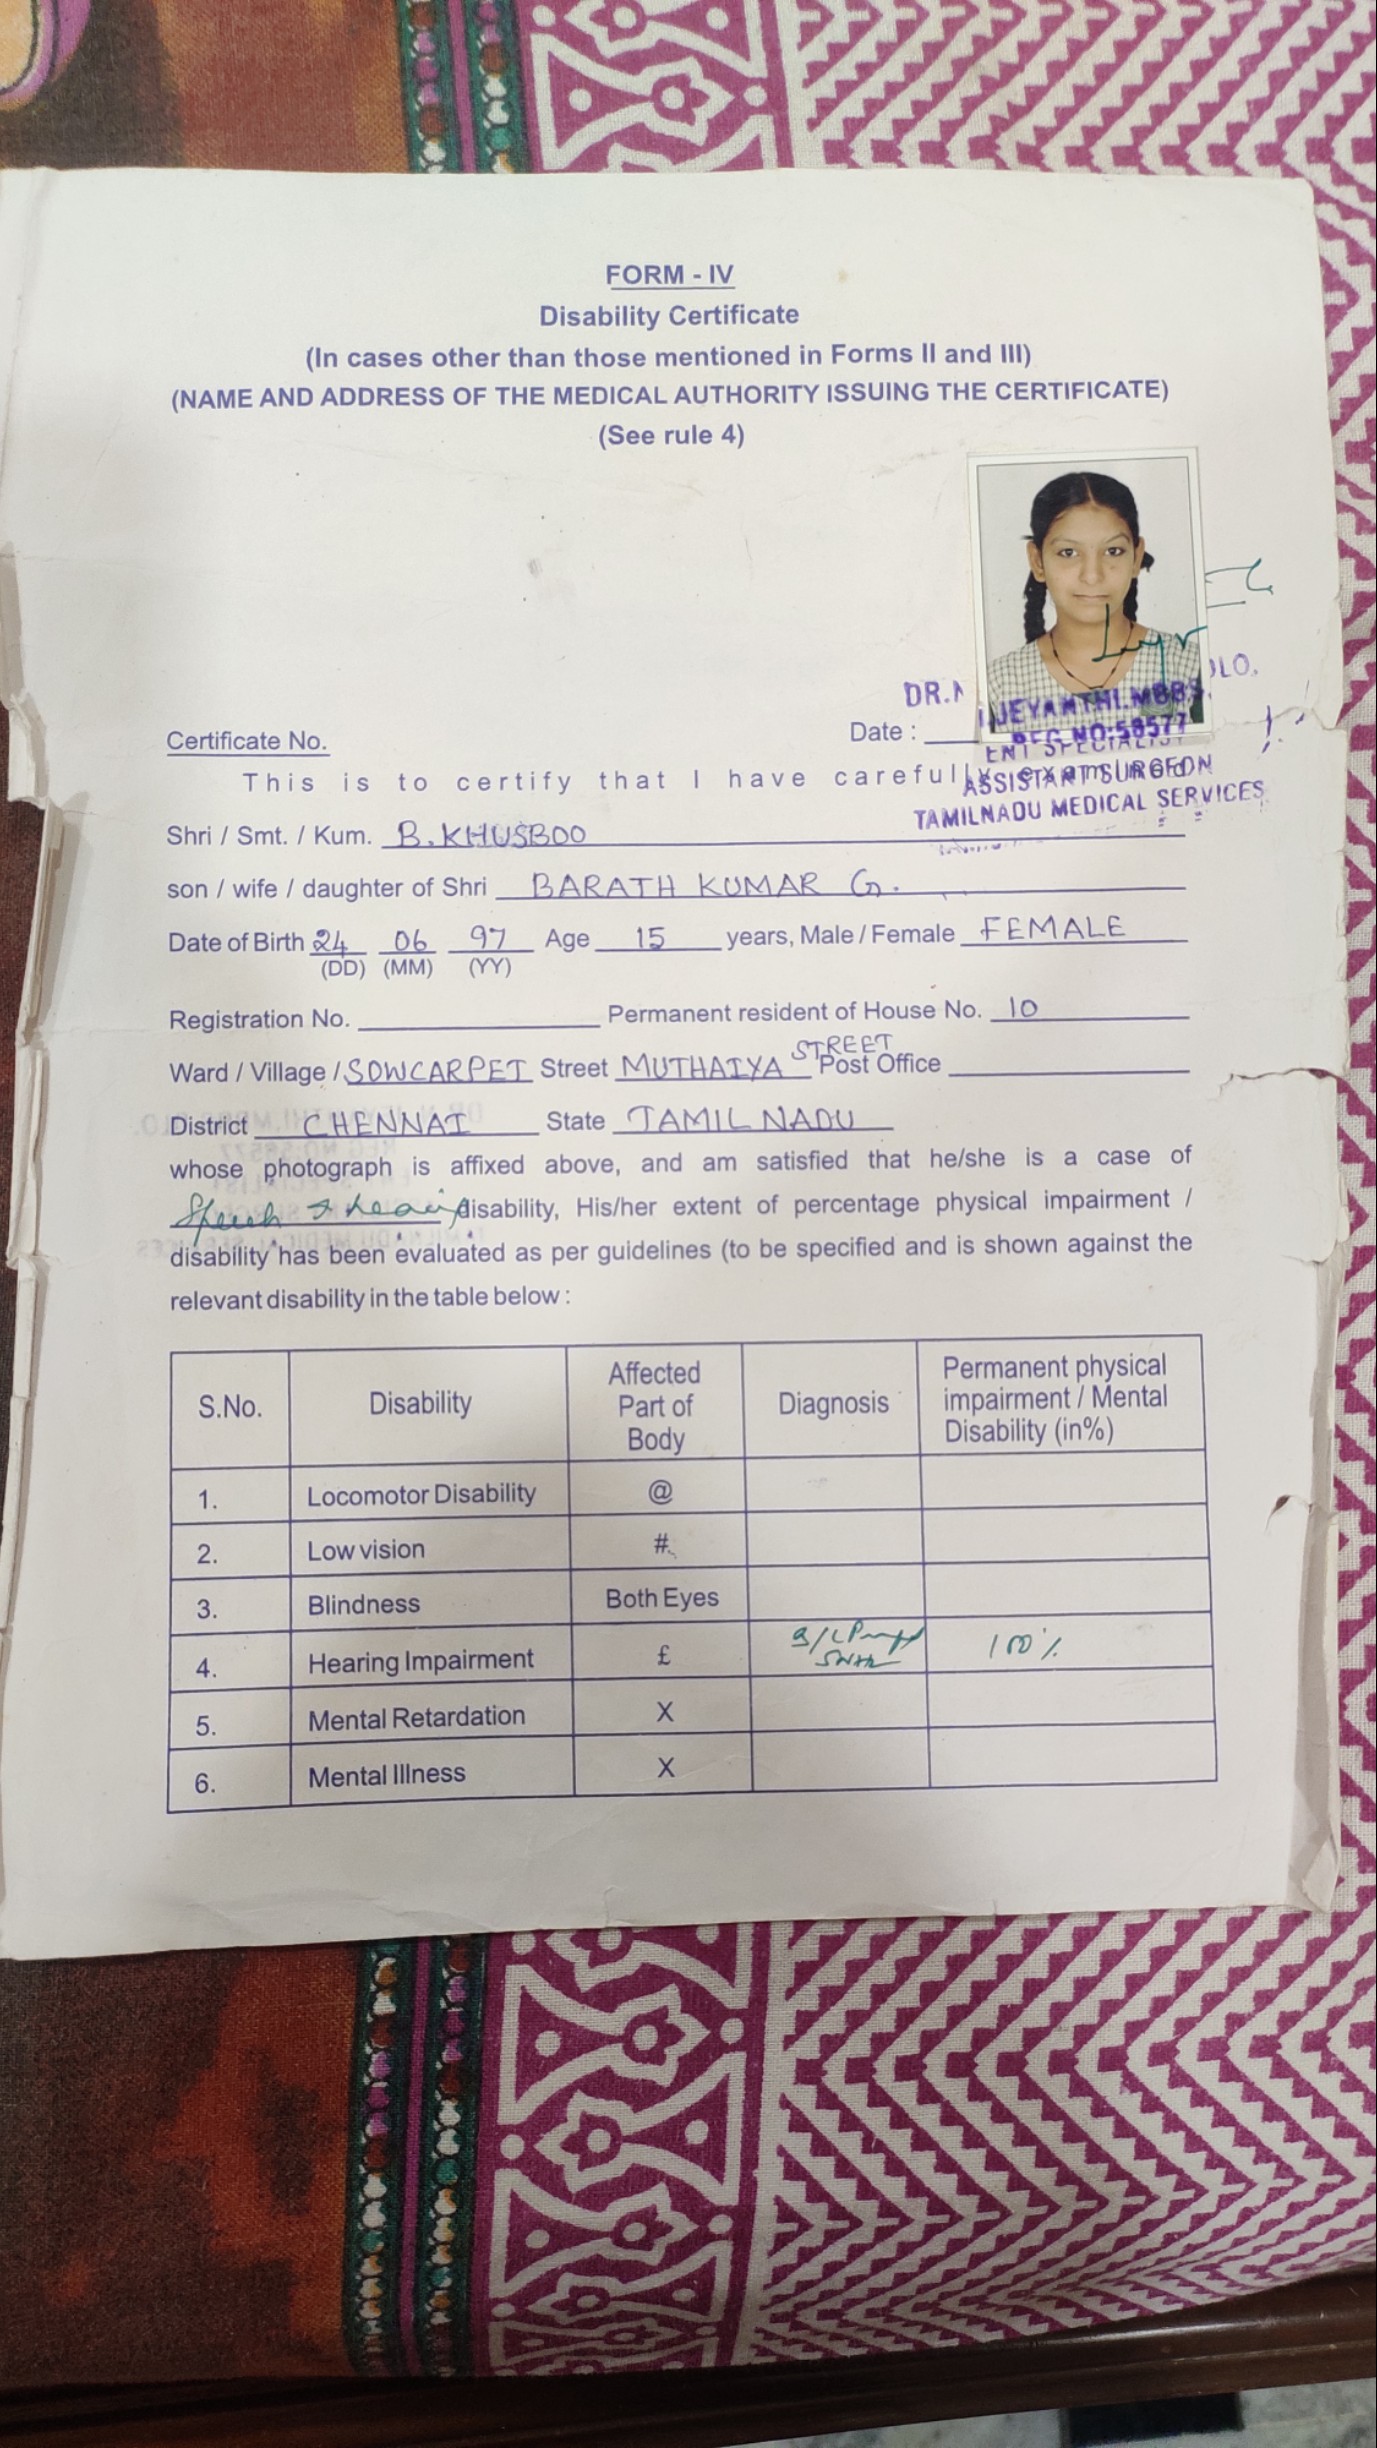 FORM - IV
Disability Certificate
(In cases other than those mentioned in Forms II and III)
(NAME AND ADDRESS OF THE MEDICAL AUTHORITY ISSUING THE CERTIFICATE)
(See rule 4)
DR.N JEYANTHI.MBBS, DLO,
REG NO:58577
ENT SPECIALIST
ASSISTANT SURGEON
TAMILNADU MEDICAL SERVICES
Certificate No. Date :
This is to certify that I have carefully examined
Shri / Smt. / Kum. B. KHUSBOO
son / wife / daughter of Shri BARATH KUMAR G.
Date of Birth 24 06 97 Age 15 years, Male / Female FEMALE
(DD) (MM) (YY)
Registration No. Permanent resident of House No. 10
Ward / Village / SOWCARPET Street MUTHAIYA STREET Post Office
District CHENNAI State TAMIL NADU
whose photograph is affixed above, and am satisfied that he/she is a case of
Speech & hearing disability, His/her extent of percentage physical impairment /
disability has been evaluated as per guidelines (to be specified and is shown against the
relevant disability in the table below :
S.No. Disability Affected Part of Body Diagnosis Permanent physical impairment / Mental Disability (in%)
1. Locomotor Disability @
2. Low vision #
3. Blindness Both Eyes
4. Hearing Impairment £ B/L SNHL 100%
5. Mental Retardation X
6. Mental Illness X